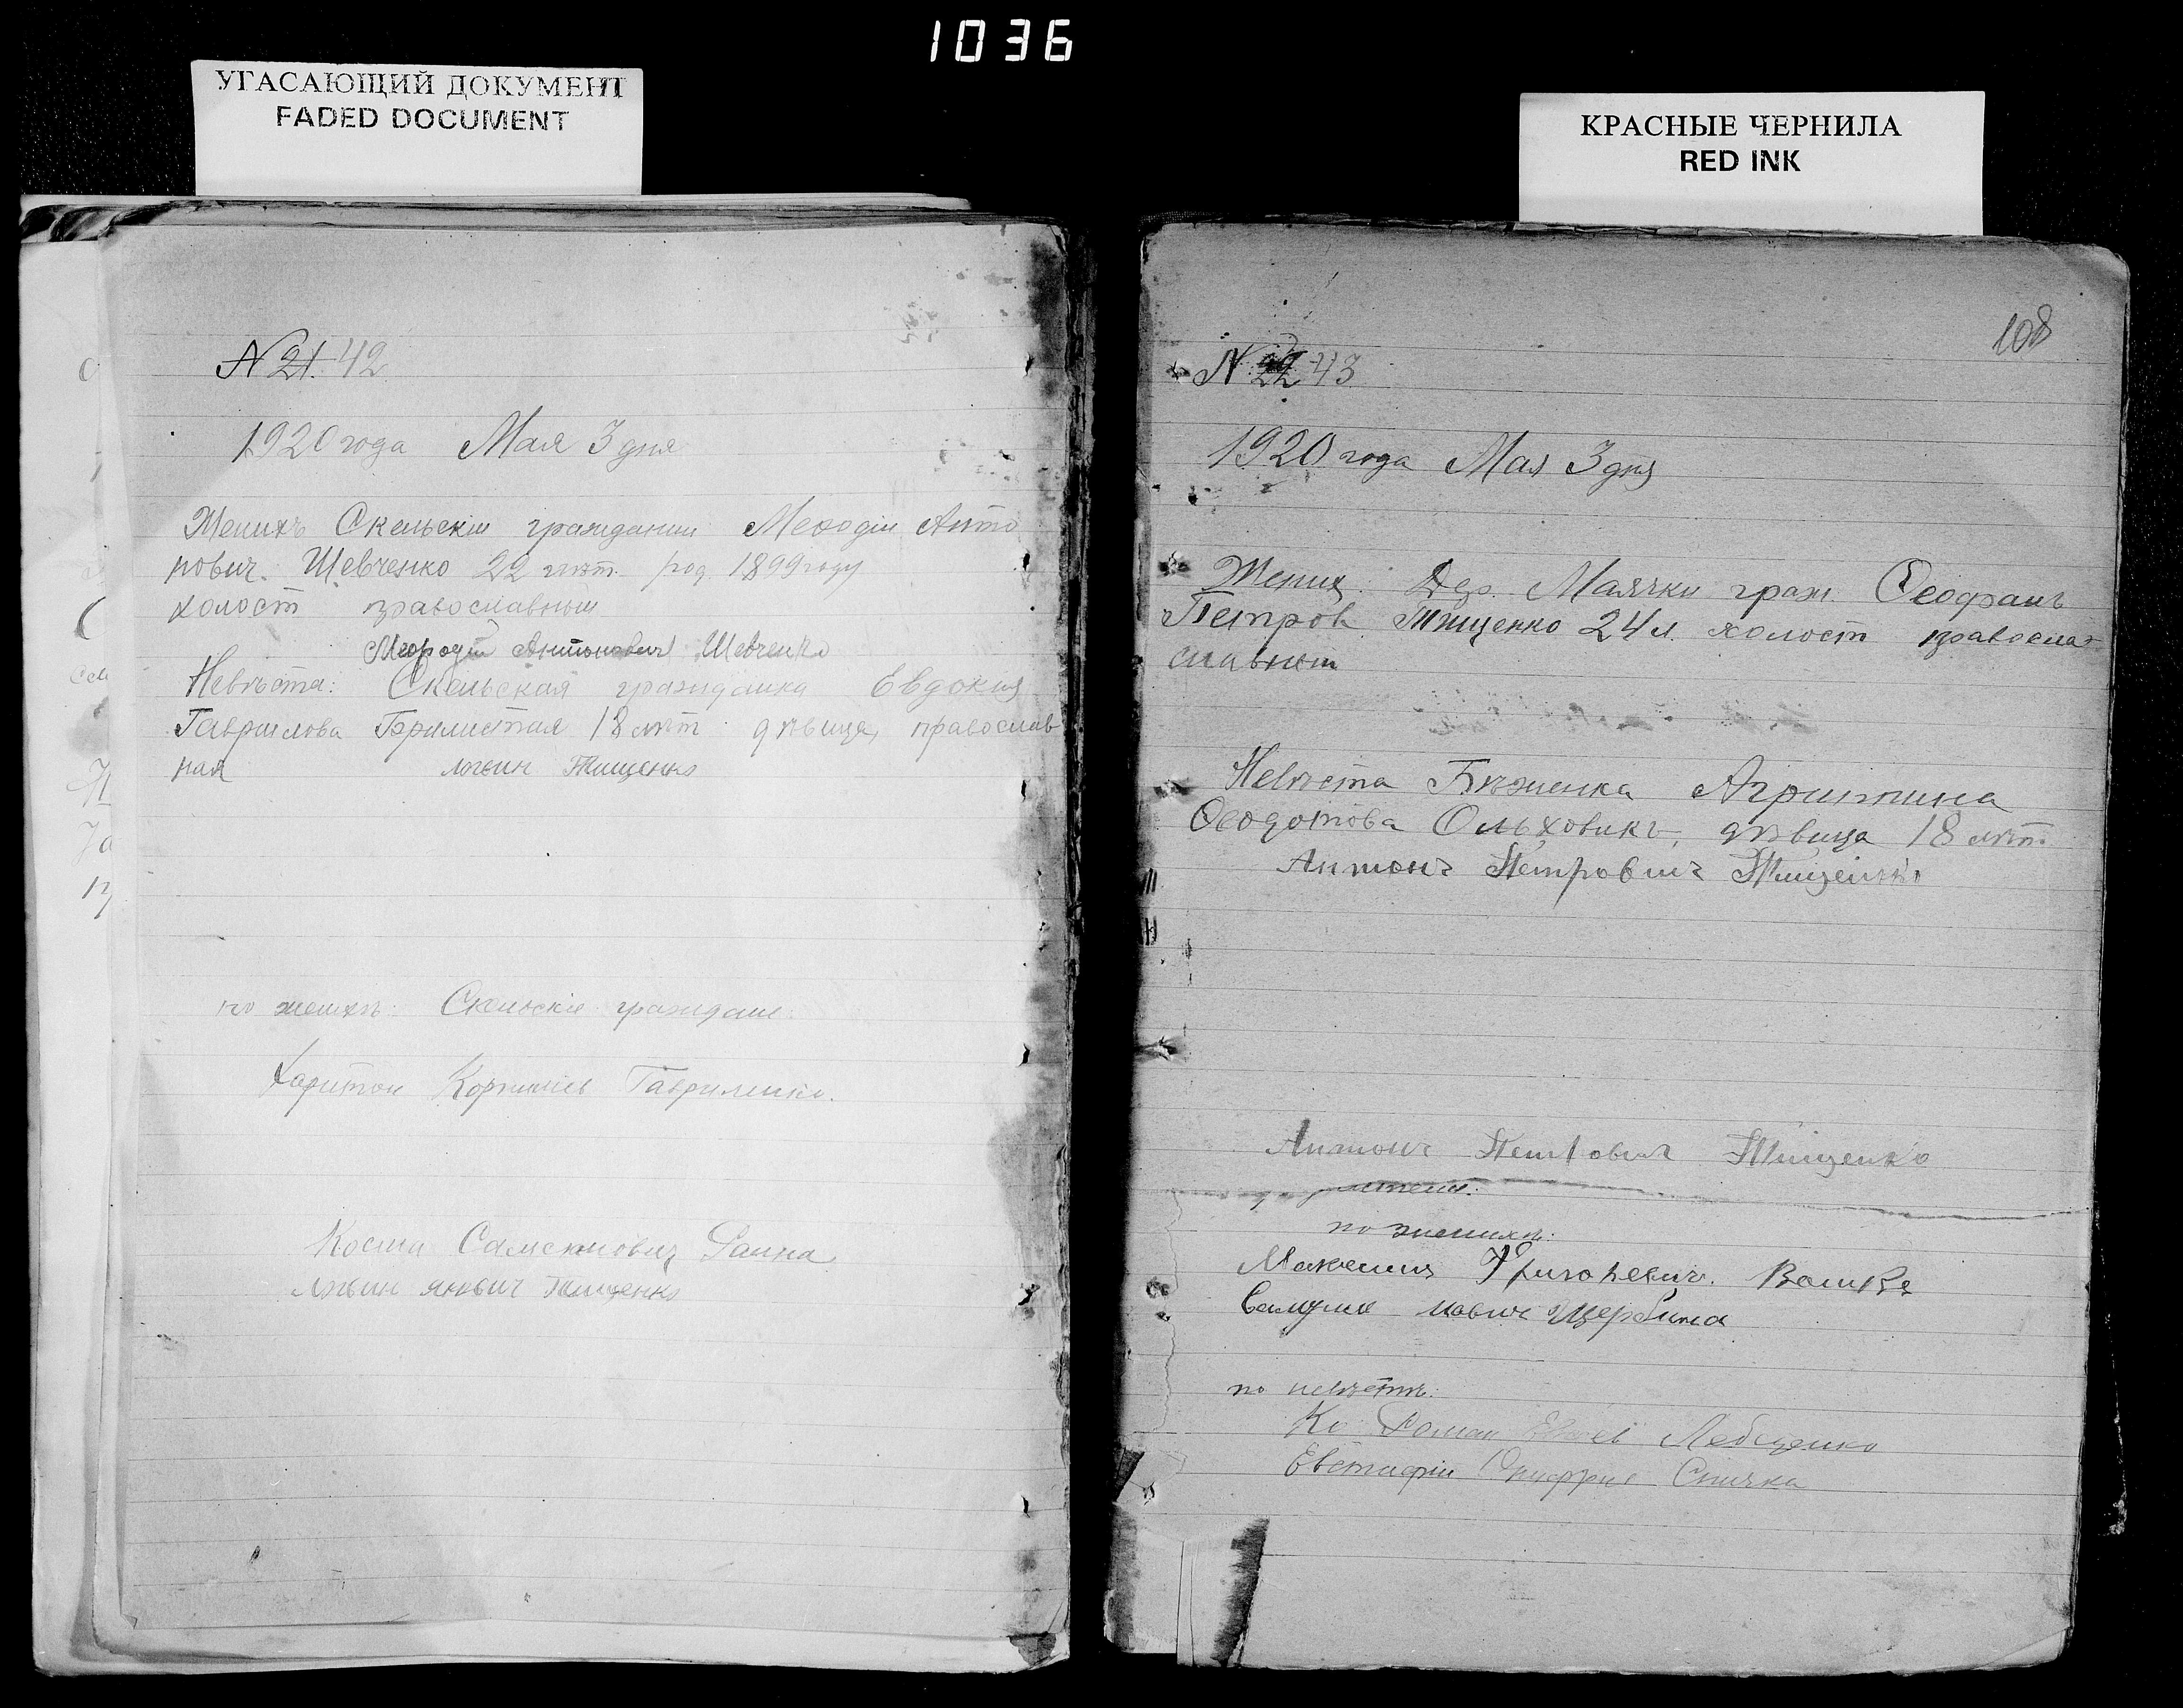 1036
УГАСАЮЩИЙ ДОКУМЕНТ
FADED DOCUMENT
КРАСНЫЕ ЧЕРНИЛА
RED INK
N 21. 42
1920 года Мая 3 дня
Женихъ Скельскій гражданин Меѳодій Анто
нович. Шевченко 22 лѣт. род. 1899 году
холост православный
Меѳодій Антонович Шевченко
Невѣста: Скельская гражданка Евдокия
Гаврилова 18 лѣт дѣвица, православ
ная Тищенко
по женихѣ: Скельскіе граждане
Харитон Гавриленко.
Косма
Тищенко
108
N 22 43
1920 года Мая 3 дня
Жених Дер. Маячки граж. Ѳеофанъ
Петров Тищенко 24 л. холост правосла-
славный
Невѣста Бѣженка Агрипина
Ѳеодотова Ольховикъ, дѣвица 18 лѣт.
Антонъ Петровичъ Тищенко
Антонъ Петровичъ Тищенко
по женихѣ:
Григоревичъ.
Щербина
по невѣстѣ:
Роман
Евстафій Спичка